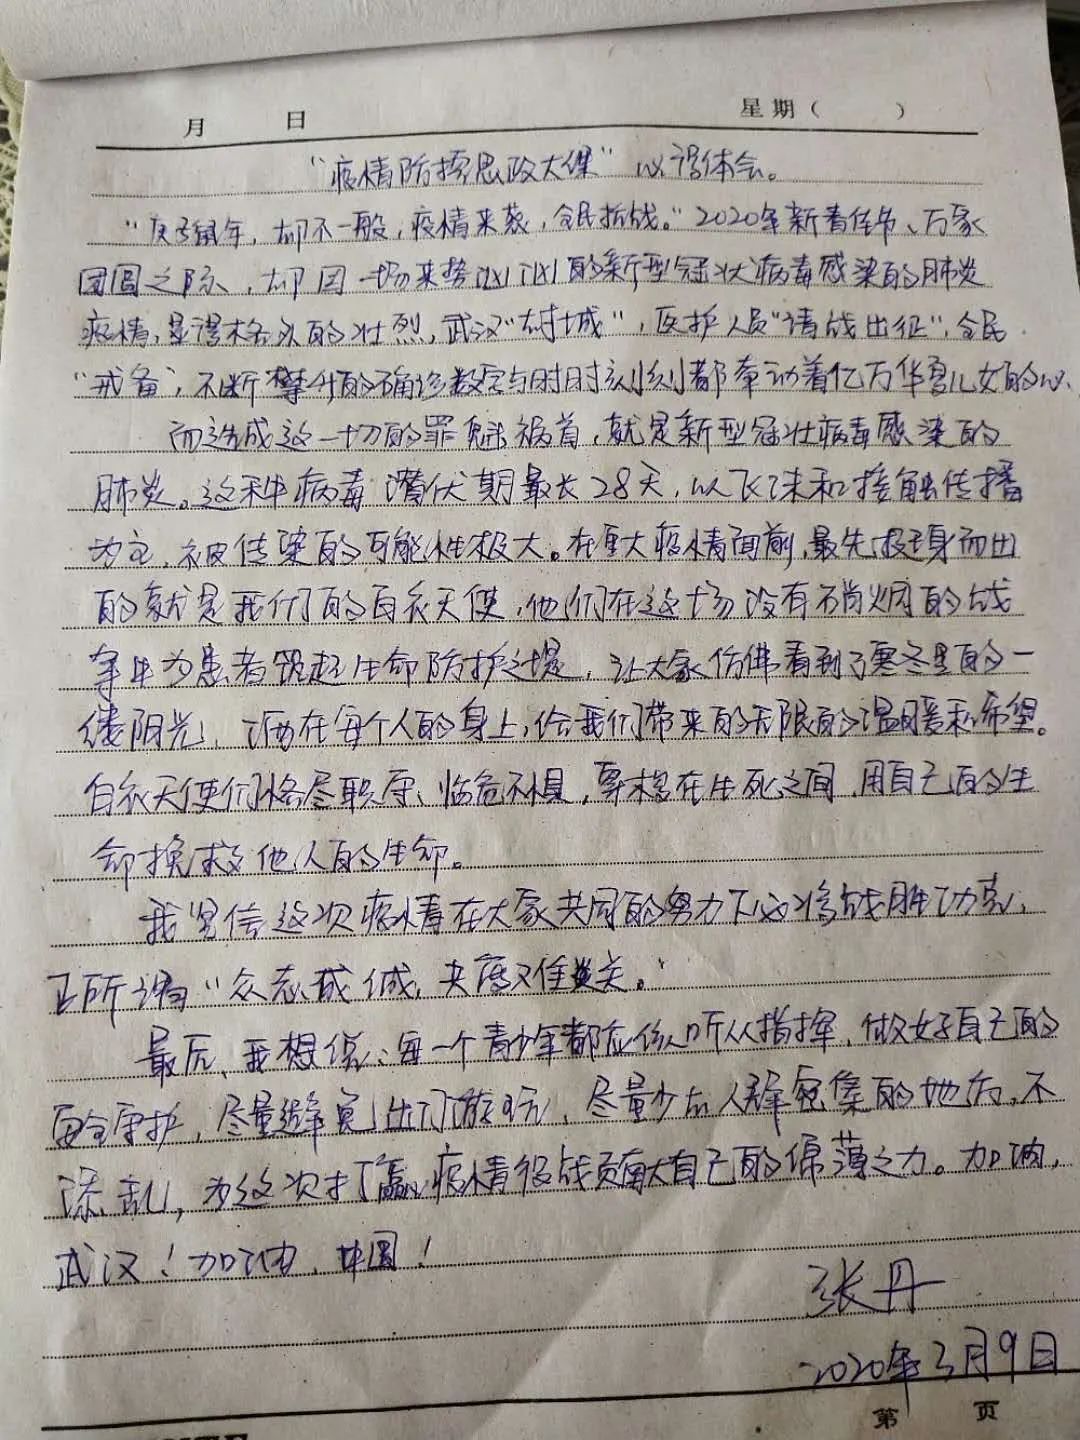 月 日 星期( )
"疫情防控思政大课"心得体会。
"庚子鼠年,却不一般,疫情来袭,全民抗战。"2020年新春佳节、万家
团圆之际、却因一场来势汹汹的新型冠状病毒感染的肺炎
疫情,显得格外的壮烈,武汉"封城",医护人员"请战出征",全民
"戒备",不断攀升的确诊数字与时时刻刻都牵动着亿万华夏儿女的心、
而造成这一切的罪魁祸首,就是新型冠状病毒感染的
肺炎。这种病毒潜伏期最长28天,以飞沫和接触传播
为主,被传染的可能性极大。在重大疫情面前,最先挺身而出
的就是我们的白衣天使,他们在这场没有硝烟的战
争中为患者筑起生命防护之堤,让大家仿佛看到了寒冬里的一
缕阳光,洒在每个人的身上,给我们带来的无限的温暖和希望。
白衣天使们恪尽职守、临危不惧,穿梭在生死之间,用自己的生
命换救他人的生命。
我坚信这次疫情在大家共同的努力下必将战胜功克,
正所谓"众志成城,共度难关。"
最后,我想说:每一个青少年都应该听从指挥,做好自己的
安全守护,尽量避免出门游玩,尽量少去人群密集的地方,不
添乱,为这次打赢疫情役战贡献自己的绵薄之力。加油,
武汉!加油,中国!
张丹
2020年3月9日
第 页